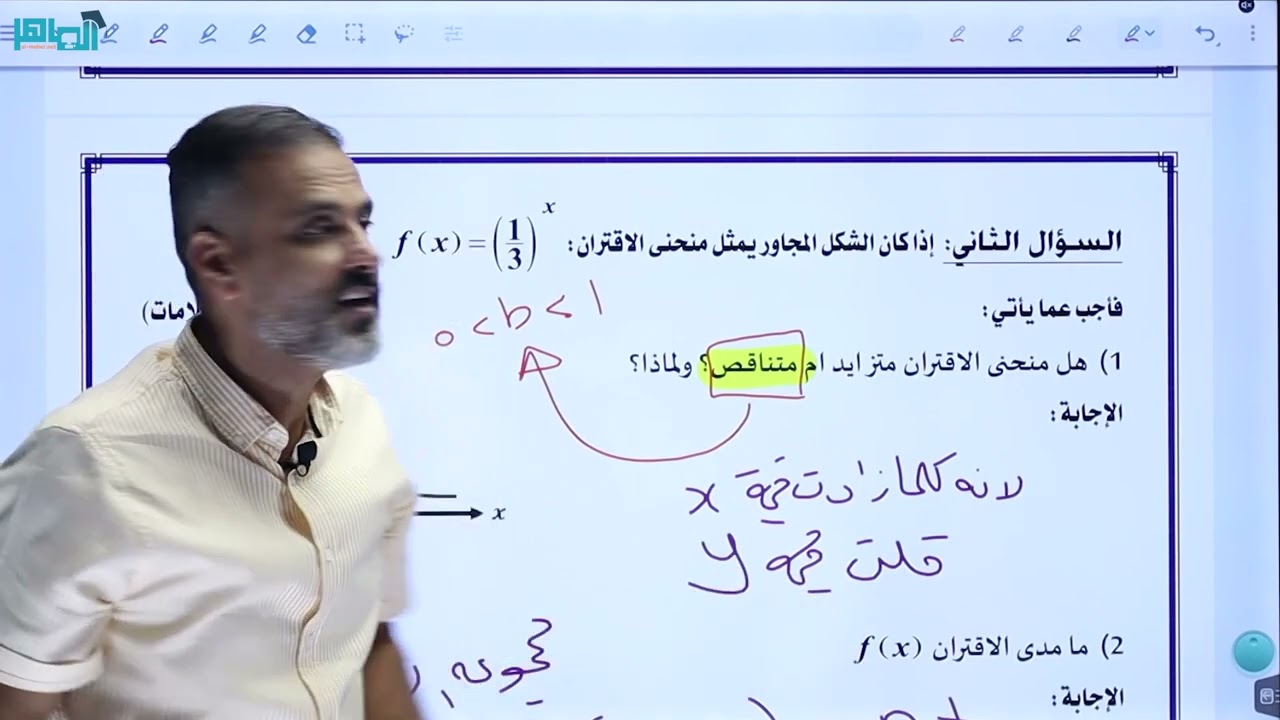 الماهر
السؤال الثاني: إذا كان الشكل المجاور يمثل منحنى الاقتران: f(x) = (1/3)^x
فأجب عما يأتي:
0 < b < 1
1) هل منحنى الاقتران متزايد ام متناقص؟ ولماذا؟
الإجابة:
لانه كلما زادت قيمة x
قلت قيمة y
x
2) ما مدى الاقتران f(x)
الإجابة: